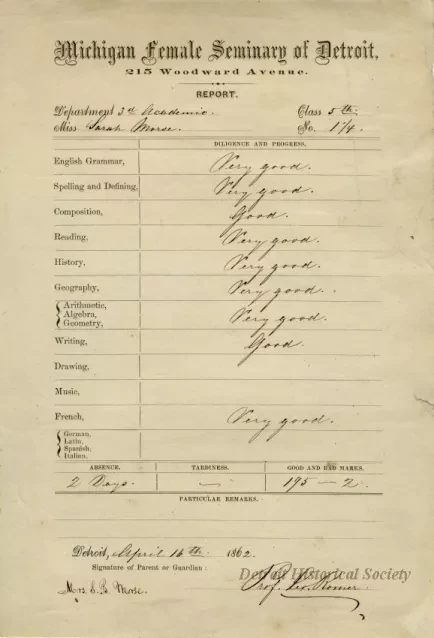 Michigan Female Seminary of Detroit,
215 Woodward Avenue.
REPORT.
Department 3rd Academic. Class 5th
Miss Sarah Morse. No. 174.
DILIGENCE AND PROGRESS.
English Grammar, Very good.
Spelling and Defining, Very good.
Composition, Good.
Reading, Very good.
History, Very good.
Geography, Very good.
Arithmetic,
Algebra, Very good.
Geometry,
Writing, Good.
Drawing,
Music,
French, Very good.
German,
Latin,
Spanish,
Italian,
ABSENCE. TARDINESS. GOOD AND BAD MARKS.
2 Days. — 195 — 2.
PARTICULAR REMARKS.
Detroit, April 16th 1862.
Signature of Parent or Guardian:
Detroit Historical Society
Mrs. S. B. Morse. Prof.